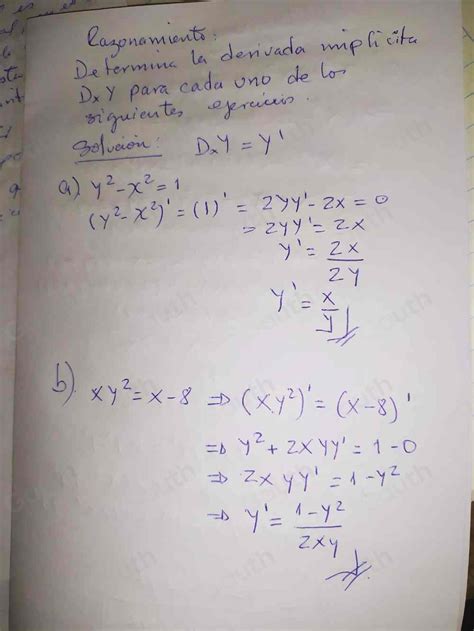 Razonamiento:
Determina la derivada implicita
DxY para cada uno de los
siguientes ejercicios.
Solución: DxY = Y'
a) y² - x² = 1
(y² - x²)' = (1)' = 2yy' - 2x = 0
= 2yy' = 2x
y' = 2x/2y
y' = x/y
b) xy² = x - 8 ⇒ (xy²)' = (x - 8)'
⇒ y² + 2xyy' = 1 - 0
⇒ 2xyy' = 1 - y²
⇒ y' = 1 - y²/2xy